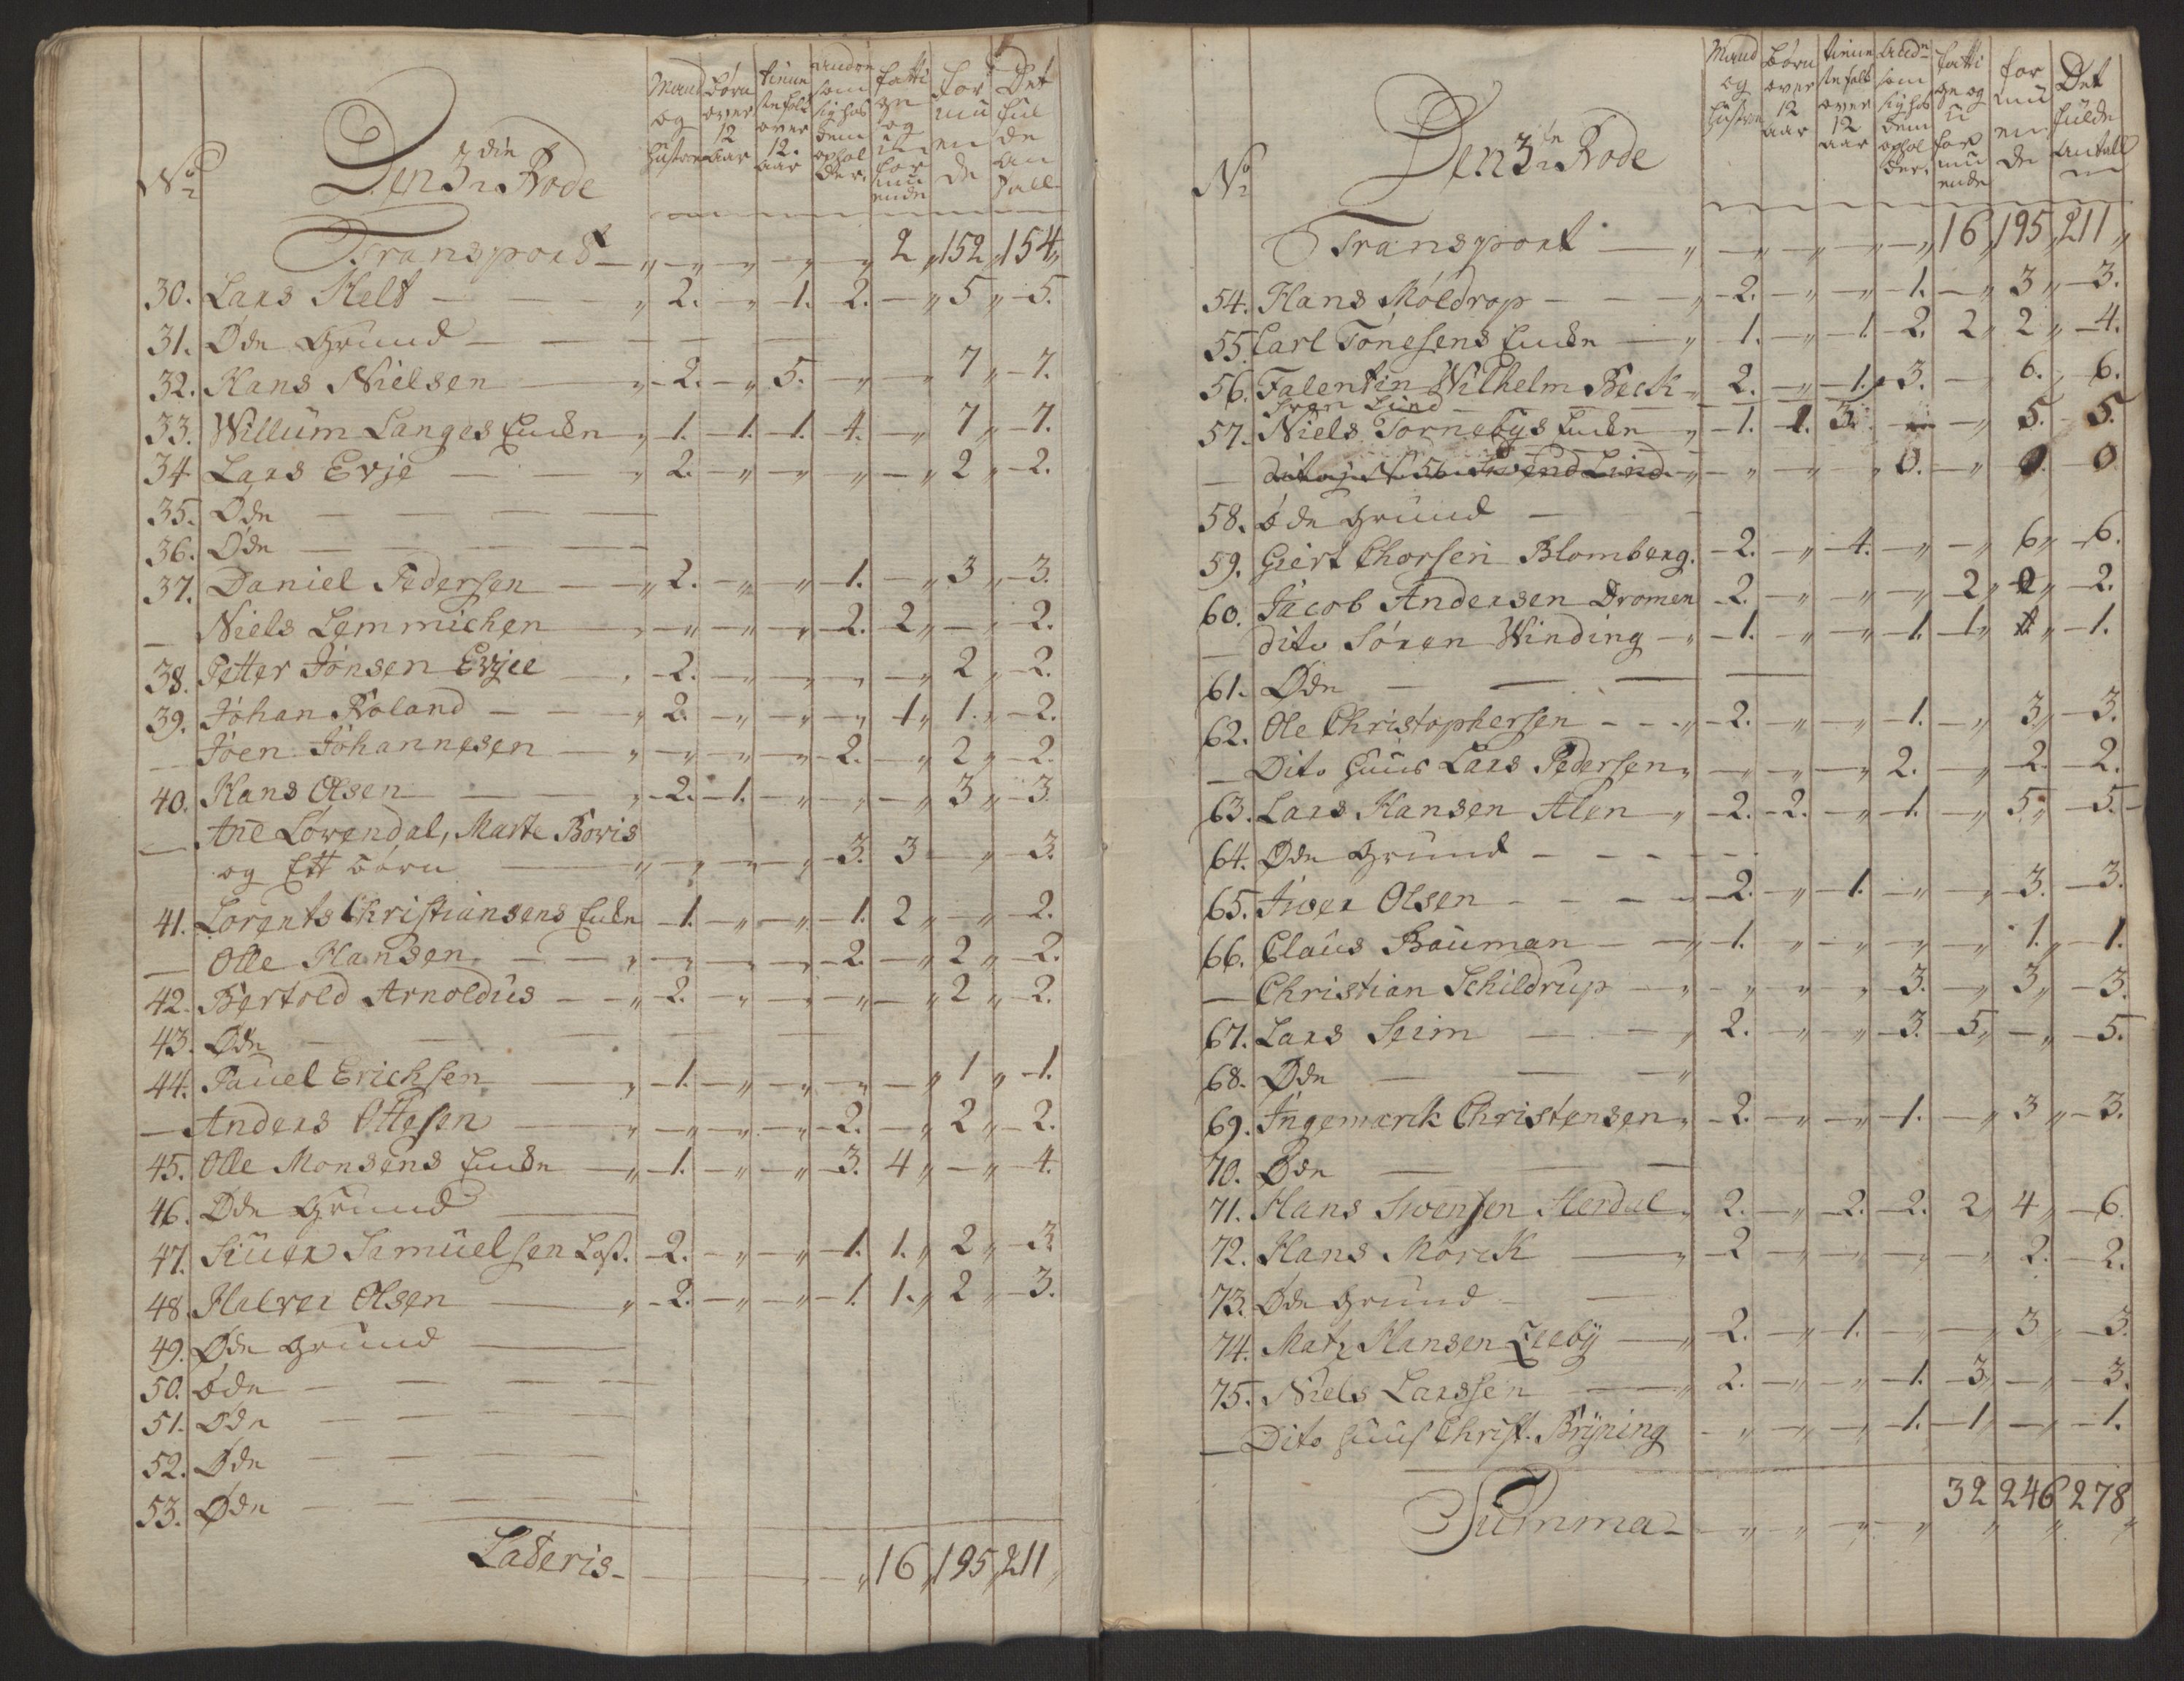 No Den 3die Rode Mand og Hustrue Börn over 12 aar tienne ste folk over 12. aar andre som sig hos dem ophol der. fatti ge og u for mu ende For mu en de Det ful de an tall
Transport — „ — „ — „ — „ — „ 2 „ 152 „ 154 „
30. Lars Kelt — „ 2. — „ — 1. 2. — „ 5 „ — 5.
31. Øde Grund —
32. Hans Nielsen — „ — 2. — „ 5. — „ — 7 „ — 7.
33. Willum Langes Encke „ 1. — 1. 1. 4. — „ 7 „ — 7.
34 Lars Evje — „ 2. — „ — „ — „ — „ 2 „ — 2.
35. Øde —
36. Øde —
37. Daniel Pedersen — „ 2. — „ — „ — 1. — „ 3 „ — 3.
— Niels Lemmichen — „ — „ — „ — „ — 2. 2 „ — „ — 2.
38. Petter Jonsen Evjee — „ — 2. — „ — „ — „ — „ 2 „ — 2.
39. Johan Roland — „ 2. — „ — „ — „ 1 „ 1. „ — 2.
— Joen Johannesen — „ — „ — „ — „ — 2. — „ 2 „ — 2.
40. Hans Olsen — „ — 2. — 1. — „ — „ — „ 3 „ — 3
— Ane Lövendal, Marte Boris
og Ett börn — „ — „ — „ — „ — 3. 3 — „ — 3.
41. Lorents Christiansens Encke — 1. — „ — „ — 1. 2 „ — „ — 2.
— Olle Hansen — „ — „ — „ — „ — 2. — „ 2 „ — 2.
42. Bertold Arnoldus — „ — 2. — „ — „ — „ — „ 2 „ — 2.
43. Øde —
44. Pauel Erichsen — „ — 1. — „ — „ — „ — „ 1 „ — 1.
— Anders Ottesen — „ — „ — „ — „ — 2. — „ 2 „ — 2.
45. Olle Monsens Encke — „ — 1. — „ — „ — 3. 4 „ — „ — 4.
46. Øde Grund —
47. Siuer Samuelsen Loss. — 2. — „ — „ — 1. 1. „ 2 „ — 3
48. Halver Olsen — „ — 2. — „ — „ — 1. 1. „ 2 „ — 3.
49. Øde Grund —
50. Øde —
51. Øde —
52. Øde —
53. Øde —
Lateris — „ 16 „ 195 „ 211 „
No Den 3de Rode Mand og Hustrue Börn over 12 aar tienne ste folk over 12 aar andre som sig hos dem ophol der. fatti ge og u for mu ende for mu en de Det fulde antall
Transport — „ — „ — „ — „ — „ 16 „ 195 „ 211 „
54. Hans Moldrop — „ — 2. — „ — „ — 1. — „ 3 „ — 3.
55. Carl Tönesens Encke — „ — 1. — „ — 1. — 2. 2 „ 2 „ — 4.
56. Falentin Wilhelm Beck „ 2. — „ — 1. „ 3. — 6. „ 6.
Sven Lind
57. Niels Tornebys Encke „ — 1. 1. 3. — „ — 5. 5.
— dito Svend Lind „ — „ — „ — „ 0. — „ 0. — 0
58. Øde Grund —
59. Giert Thorsen Blomberg. — 2. — „ — 4. — „ — „ 6 „ — 6.
60. Jacob Andersen Dromen — 2. — „ — „ — „ — 2 „ 0 „ — 2.
— dito Sören Winding — „ — 1. — „ — „ — 1. 1 „ — „ — 1.
61. Øde —
62. Ole Christophersen — „ — 2. — „ — „ — 1. — „ 3 „ — 3.
— Dito Huus Lars Pedersen „ — „ — „ — „ 2. — „ — 2. — 2.
63. Lars Hansen Alen „ — 2. — 2. — „ — 1. — „ 5 „ — 5. —
64. Øde Grund —
65. Iwer Olsen — 2. — „ — 1. — „ — „ — 3. — 3.
66. Claus Bauman — „ — 1. „ — „ — „ — „ 1. „ — 1.
— Christian Schildrup — „ — „ — „ — „ 3. — „ 3 „ — 3.
67. Lars Seim — „ 2. „ — „ — 3. — 5 „ — „ — 5.
68. Øde — „
69. Ingemarck Christensen „ — 2. — „ — „ — 1. — „ 3 „ — 3.
70. Øde —
71. Hans Swensen Herdal „ 2. — „ — 2. — 2. 2 „ 4 „ — 6.
72. Hans Mörck — „ — 2 — „ — „ — „ — „ 2. — 2.
73. Øde Grund —
74. Matz Hansen Leeby — „ — 2. — „ — 1. — „ — „ 3 „ — 3.
75. Niels Larssen — „ 2. — „ — „ — 1. — 3 „ — „ — 3.
— Dito Huus Christ. Bryning — „ — „ — „ — 1. — 1 „ — „ — 1.
Summa — 32 246 278